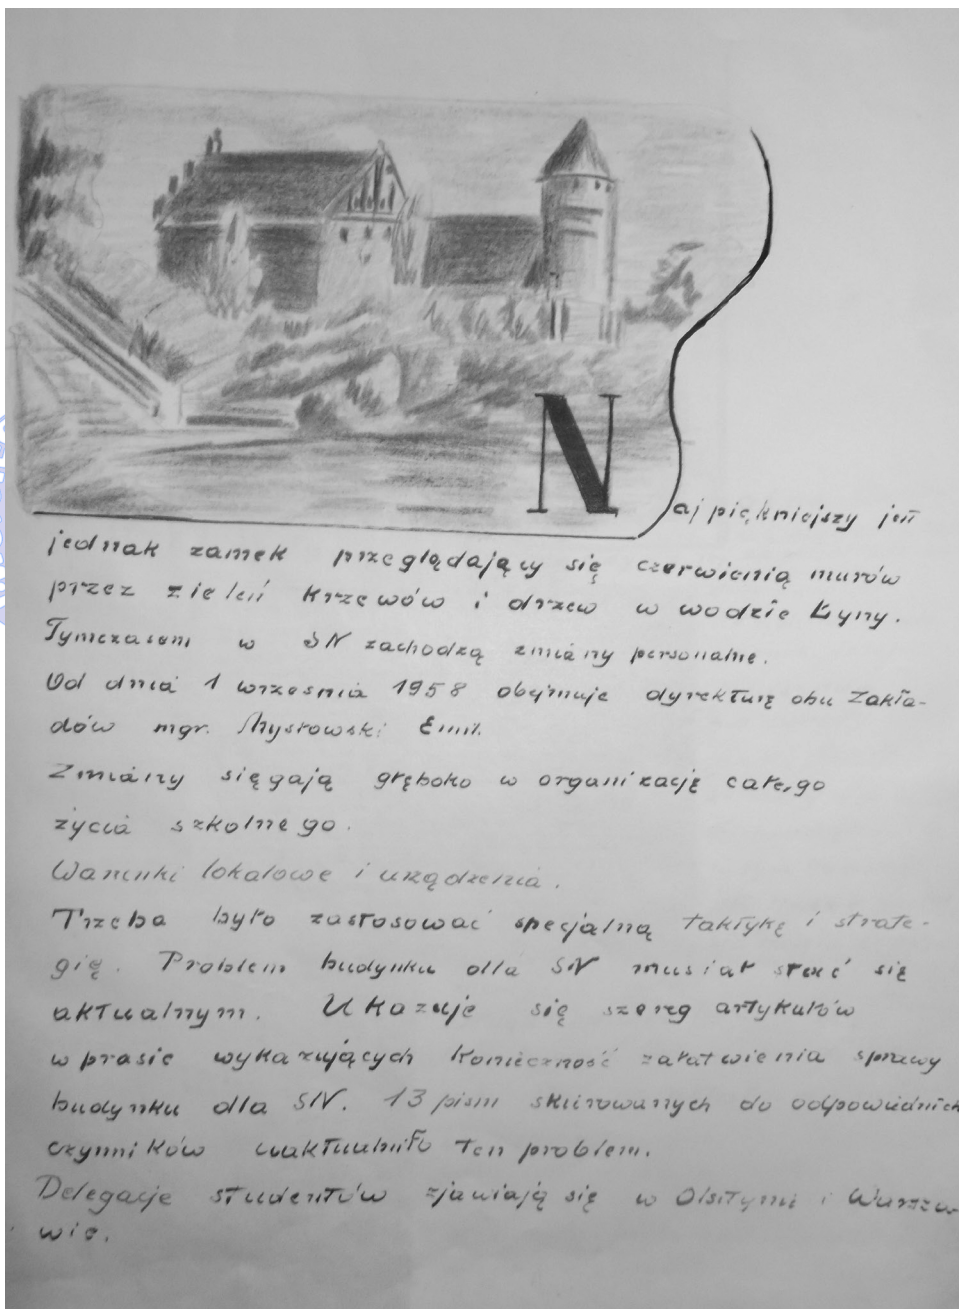 Najpiękniejszy jest
jednak zamek przeglądający się czerwienią murów
przez zieleń krzewów i drzew w wodzie Łyny.
Tymczasem w SN zachodzą zmiany personalne.
Od dnia 1 września 1958 obejmuje dyrekturę obu Zakła-
dów mgr. Mysłowski Emil.
Zmiany sięgają głęboko w organizację całego
życia szkolnego.
Warunki lokalowe i urządzenia.
Trzeba było zastosować specjalną taktykę i strate-
gię. Problem budynku dla SN musiał stać się
aktualnym. Ukazuje się szereg artykułów
w prasie wykazujących konieczność załatwienia sprawy
budynku dla SN. 13 pism skierowanych do odpowiednich
czynników uaktualniło ten problem.
Delegacje studentów zjawiają się w Olsztynie i Warsza-
wie.